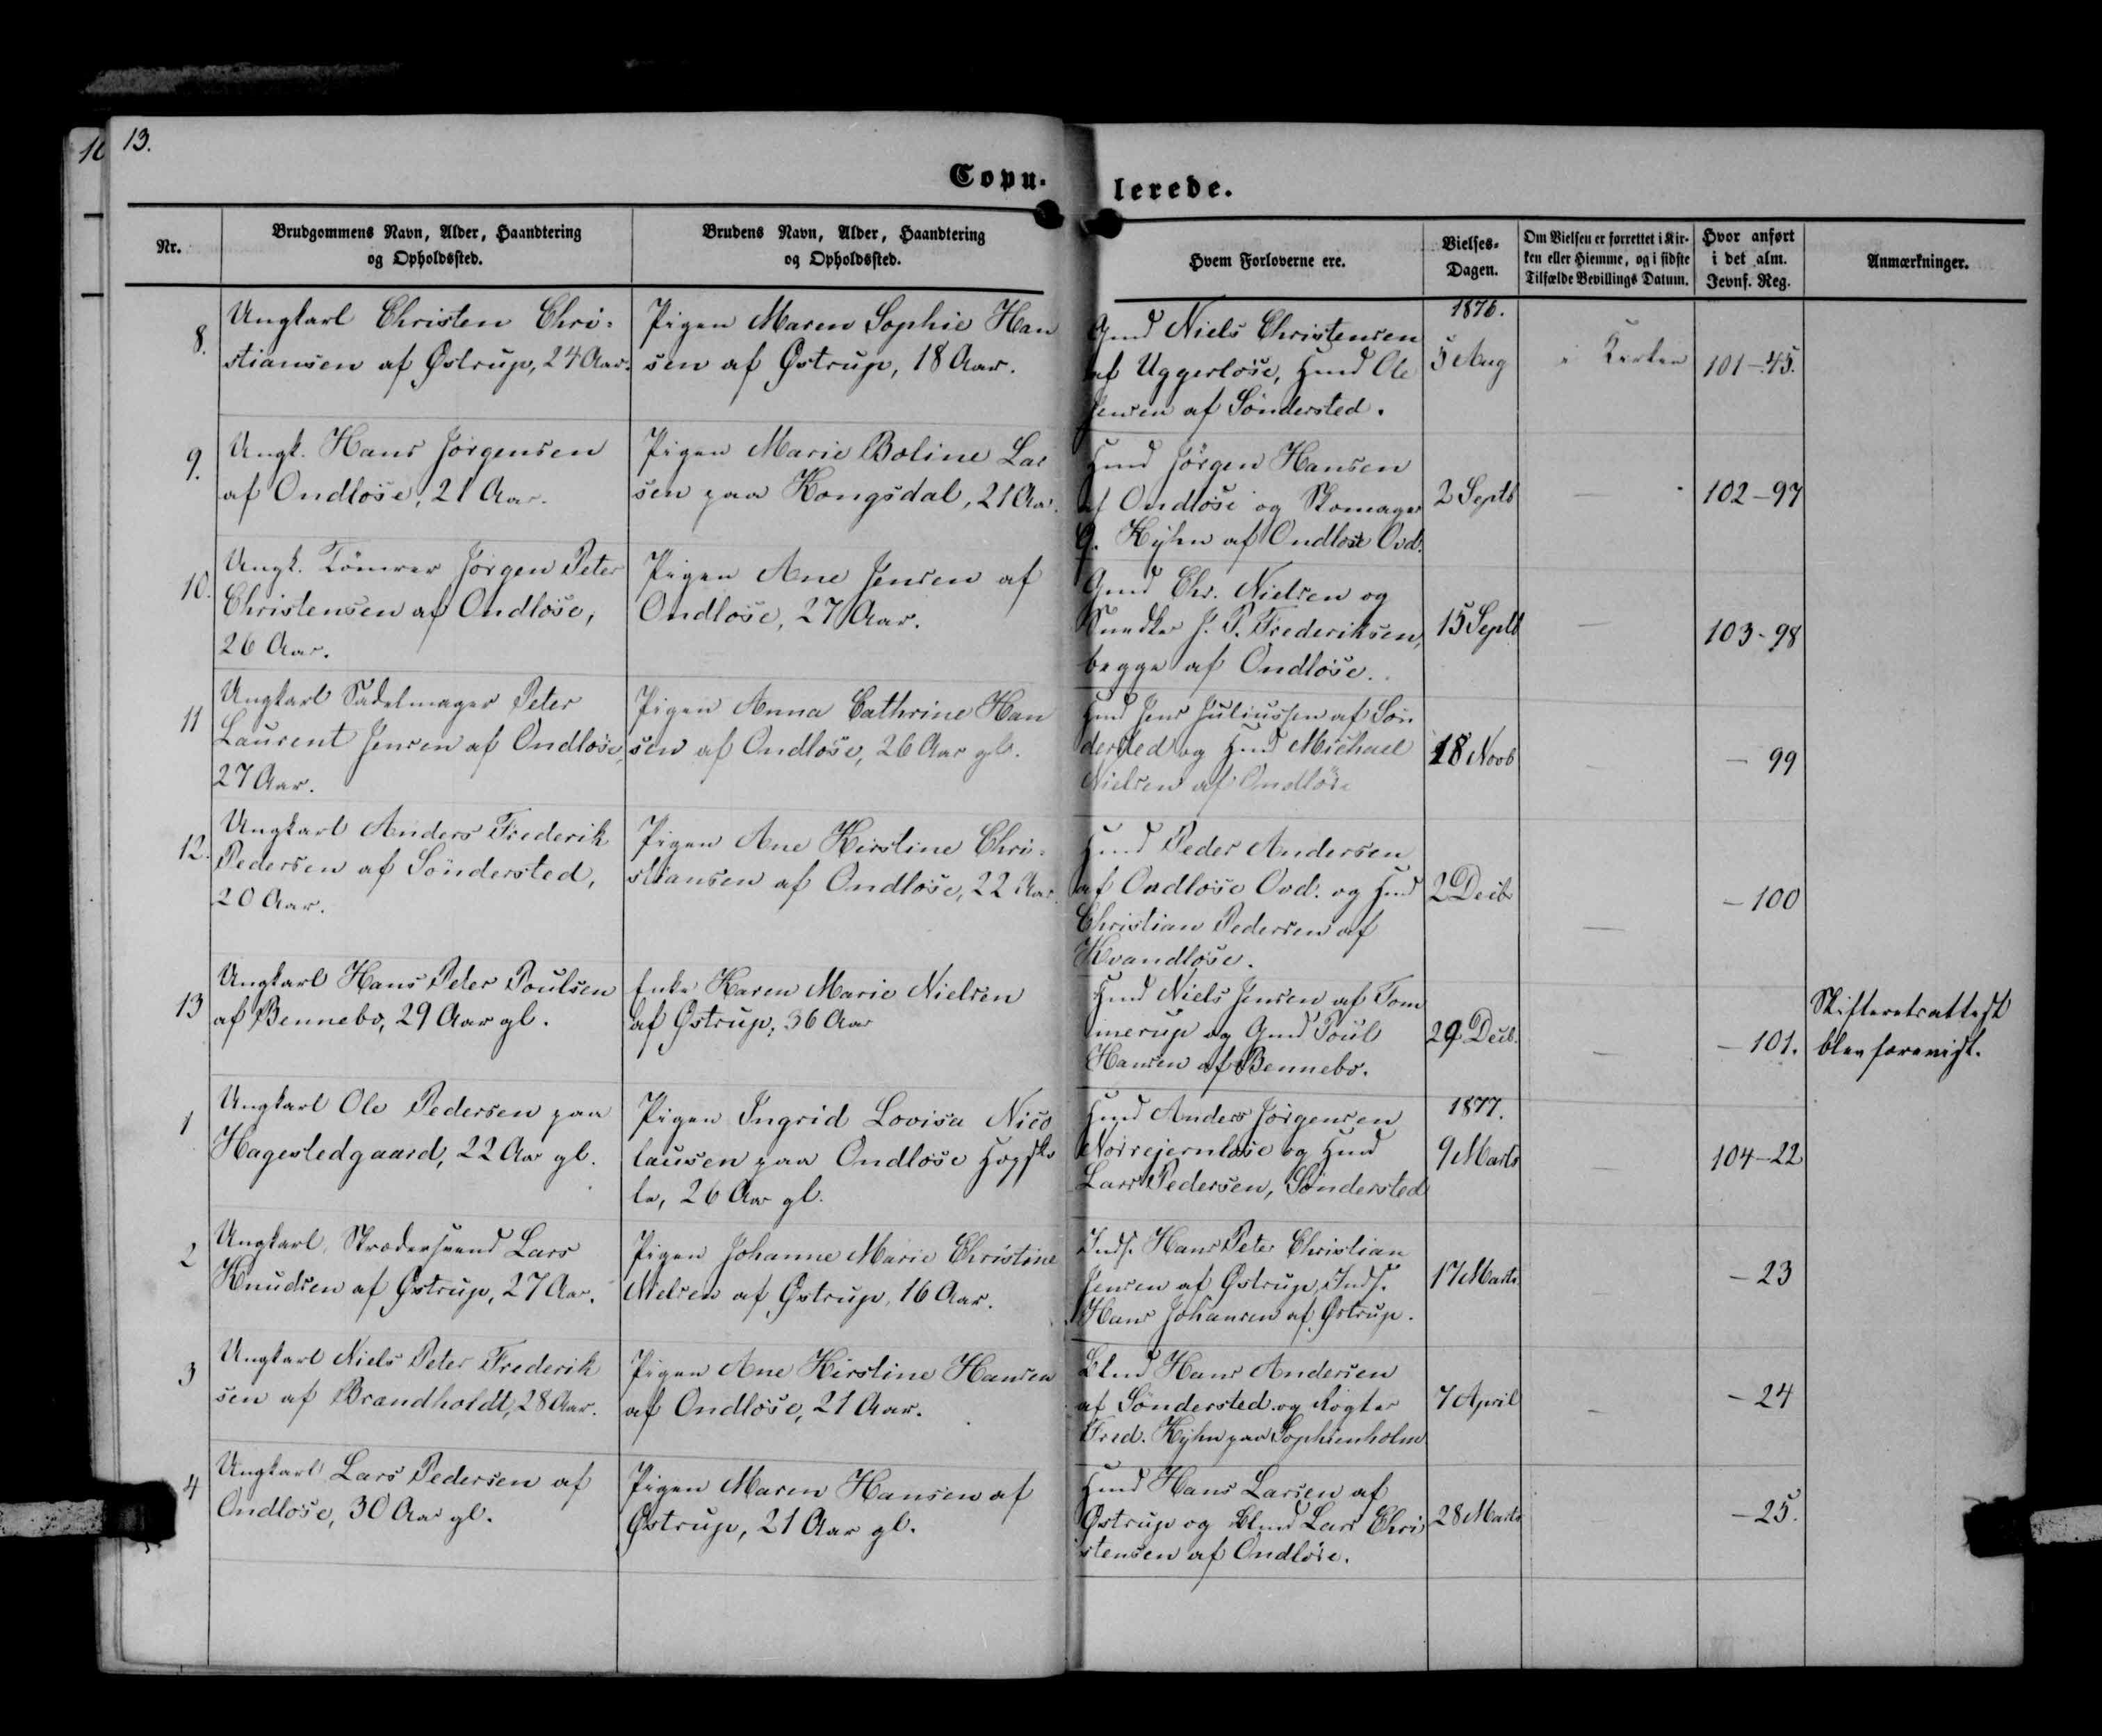 13.
Copu-
lerede.
Nr.
Brudgommens Navn, Alder, Haandtering
og Opholdssted.
Brudens Navn, Alder, Haandtering
og Opholdssted.
Hvem Forloverne ere.
Vielses-
Dagen.
Om Vielsen er forrettet i Kir-
ken eller Hiemme, og i sidste
Tilfælde Bevillings Datum.
Hvor anført
i det alm.
Jevnf. Reg.
Anmærkninger.
8.
Ungkarl Christen Chri-
stiansen af Østrup, 24 Aar.
Pigen Maren Sophie Han
sen af Østrup, 18 Aar.
Gmd Niels Christensen
af Uggerløse, Hmd Ole
Jensen af Søndersted.
1876.
5 Aug
i Kirken
101-45.
9.
Ungk. Hans Jørgensen
af Ondløse, 21 Aar.
Pigen Marie Boline Lar
sen paa Kongsdal, 21 Aar.
Hmd Jørgen Hansen
af Ondløse og Skomager
Kyhn af Ondløse Ovd.
2 Septb
—
102-97
10.
Ungk. Tömrer Jørgen Peter
Christensen af Ondløse,
26 Aar.
Pigen Ane Jensen af
Ondløse, 27 Aar.
Gmd Chr. Nielsen og
Snedker J. P. Frederiksen,
begge af Ondløse.
15 Septb
—
103-98
11
Ungkarl Sadelmager Peter
Laurent Jensen af Ondløse,
27 Aar.
Pigen Anna Cathrine Han
sen af Ondløse, 26 Aar gl.
Hmd Jens Juliussen af Søn
dersted og Hmd Michael
Nielsen af Ondløse
18 Novb
—
— 99
12.
Ungkarl Anders Frederik
Pedersen af Söndersted,
20 Aar.
Pigen Ane Kirstine Chri-
stiansen af Ondløse, 22 Aar.
Hmd Peder Andersen
af Ondløse Ovd. og Hmd
Christian Pedersen af
Kvandløse.
2 Decb
—
— 100
13
Ungkarl Hans Peter Poulsen
af Bennebo, 29 Aar gl.
Enke Karen Marie Nielsen
af Østrup, 36 Aar
Hmd Niels Jensen af Tom
merup og Gmd Poul
Hansen af Bennebo.
29 Decb.
—
— 101.
Skifteretsattest
blev forevist.
1
Ungkarl Ole Pedersen paa
Hagestedgaard, 22 Aar gl.
Pigen Ingrid Lovisa Nico
lausen paa Ondløse Højsko
le, 26 Aar gl.
Hmd Anders Jørgensen
Nørrejernløse og Hmd
Lars Pedersen, Søndersted
1877.
9 Marts
—
104-22
2
Ungkarl, Skrædersvend Lars
Knudsen af Østrup, 27 Aar.
Pigen Johanne Marie Christine
Nielsen af Østrup, 16 Aar.
Inds. Hans Peter Christian
Jensen af Østrup, Inds.
Hans Johansen af Østrup.
17 Marts
—
— 23
3
Ungkarl Niels Peter Frederik
sen af Brandholdt, 28 Aar.
Pigen Ane Kirstine Hansen
af Ondløse, 21 Aar.
Blmd Hans Andersen
af Søndersted og Røgter
Fred. Kyhn paa Sophienholm
7 April
—
— 24
4
Ungkarl Lars Pedersen af
Ondløse, 30 Aar gl.
Pigen Maren Hansen af
Østrup, 21 Aar gl.
Hmd Hans Larsen af
Østrup og Blmd Lars Chri
stensen af Ondløse.
28 Marts
—
— 25.